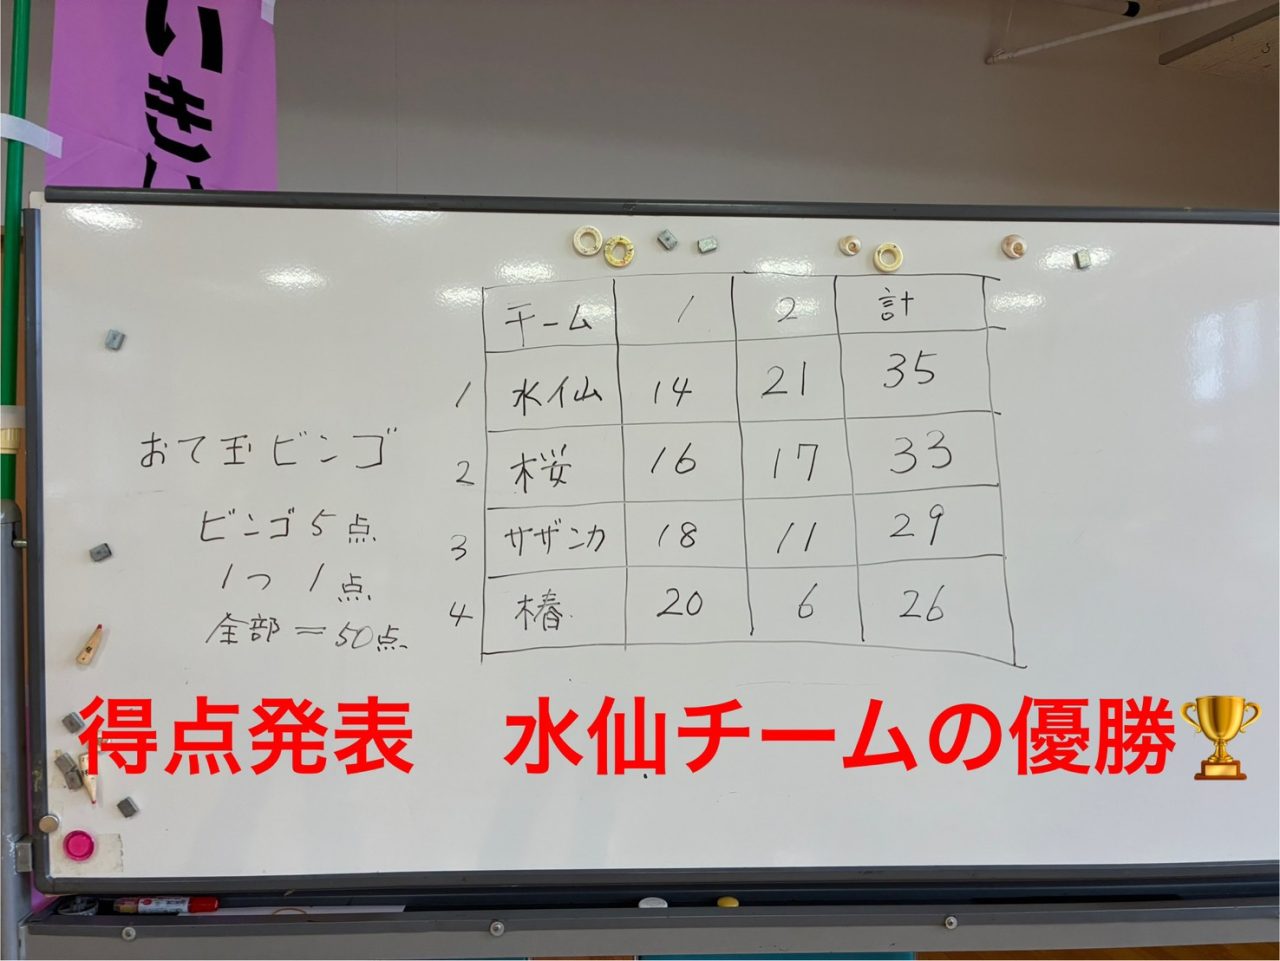 いきい
チーム 1 2 計
1 水仙 14 21 35
2 桜 16 17 33
3 サザンカ 18 11 29
4 椿 20 6 26
おて玉ビンゴ
ビンゴ5点
1つ 1点
全部=50点
得点発表 水仙チームの優勝🏆